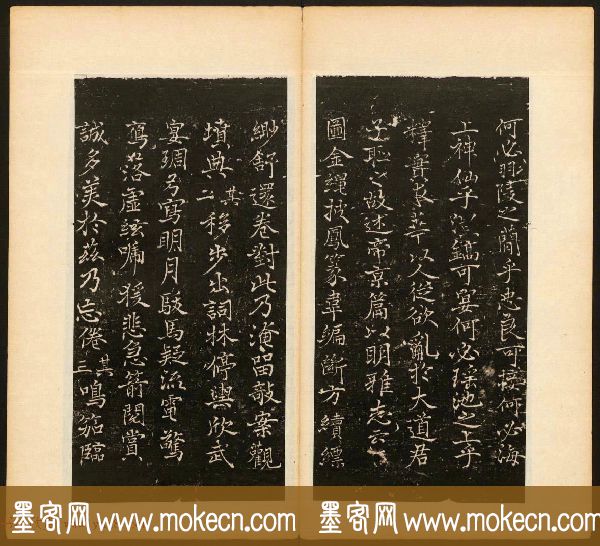 何必陵之蘭乎忠良可接何必海
上神仙乎豐鎬可宴何必瑤池之上乎
釋實求華以人從欲亂於大道君
子恥之故述帝京篇以明雅志云
圖金繩披鳳篆韋編斷方續縹
緲舒還卷對此乃淹留敧案觀
墳典其二移步出詞林停輿欣武
宴琱弓寫明月駿馬疑流電驚
鴈落虛弦嘯猨悲急箭閱賞
誠多美於茲乃忘倦其三鳴笳臨
墨客网 www.mokecn.com 墨客网 www.mokecn.com